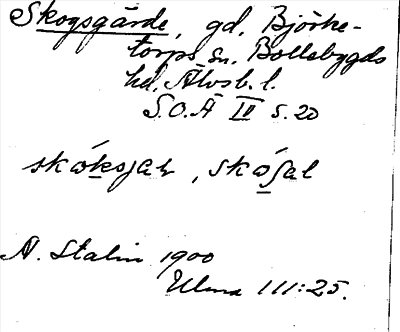 Skogsgärde, gd. Björke-
torps sn. Bollebygds
hd. Älvsb. l.
S.O.Ä II s. 20
skoksjah, skoʃal
A. Stalin 1900
Ulma 111:25.